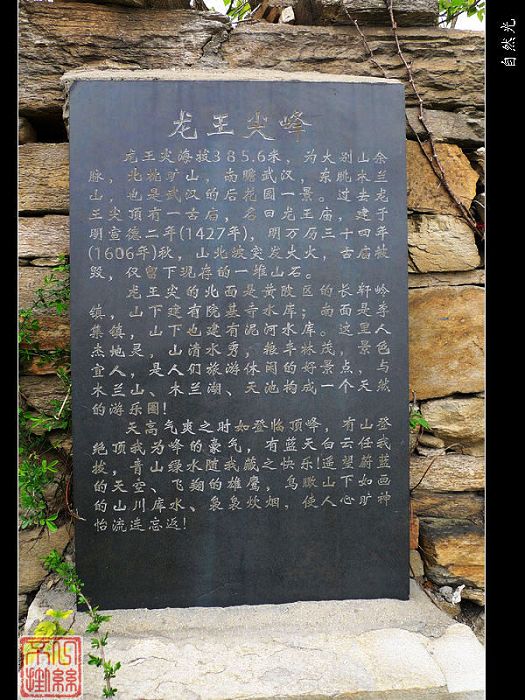 自然光
龙王尖峰
龙王尖海拔385.6米，为大别山余
脉，北眺矿山，南瞻武汉，东眺木兰
山，也是武汉的后花园一景。过去龙
王尖顶有一古庙，名曰龙王庙，建于
明宣德二年(1427年)，明万历三十四年
(1606年)秋，山北坡突发大火，古庙被
毁，仅留下现存的一堆山石。
龙王尖的北面是黄陂区的长轩岭
镇，山下建有院基寺水库；南面是李
集镇，山下也建有泥河水库。这里人
杰地灵，山清水秀，粮丰林茂，景色
宜人，是人们旅游休闲的好景点，与
木兰山、木兰湖、天池构成一个天然
的游乐圈！
天高气爽之时如登临顶峰，有山登
绝顶我为峰的豪气，有蓝天白云任我
拔，青山绿水随我藏之快乐!遥望蔚蓝
的天空、飞翔的雄鹰，鸟瞰山下如画
的山川库水、袅袅炊烟，使人心旷神
怡流连忘返！